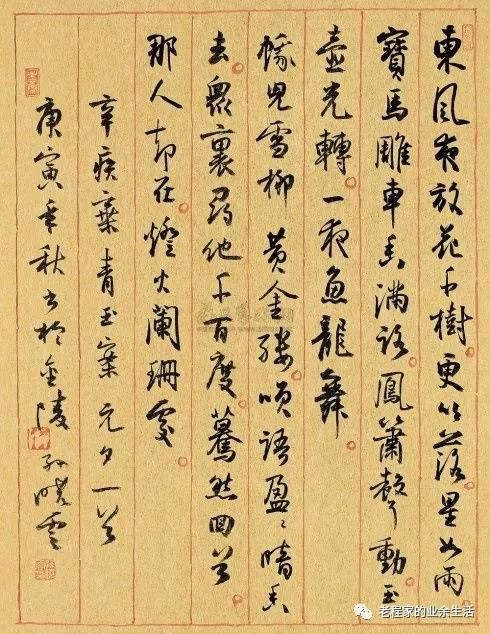 東風夜放花千樹更吹落星如雨
寶馬雕車香滿路鳳簫聲動玉
壺光轉一夜魚龍舞
蛾兒雪柳黃金縷笑語盈〻暗香
去眾裏尋他千百度驀然回首
那人却在燈火闌珊處
辛疾棄青玉案元夕一首
庚寅年秋書於金陵孫曉雲
老程家的业余生活